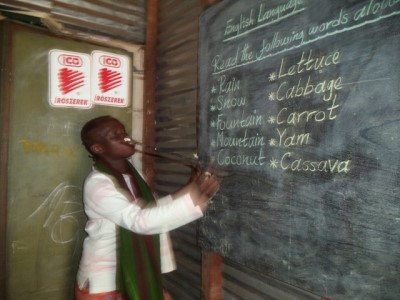 English Language
Read the following words aloud
* Rain
* Snow
* Fountain
* Mountain
* Coconut
* Lettuce
* Cabbage
* Carrot
* Yam
* Cassava
ICO
ROSZEREK
ICO
ROSZEREK